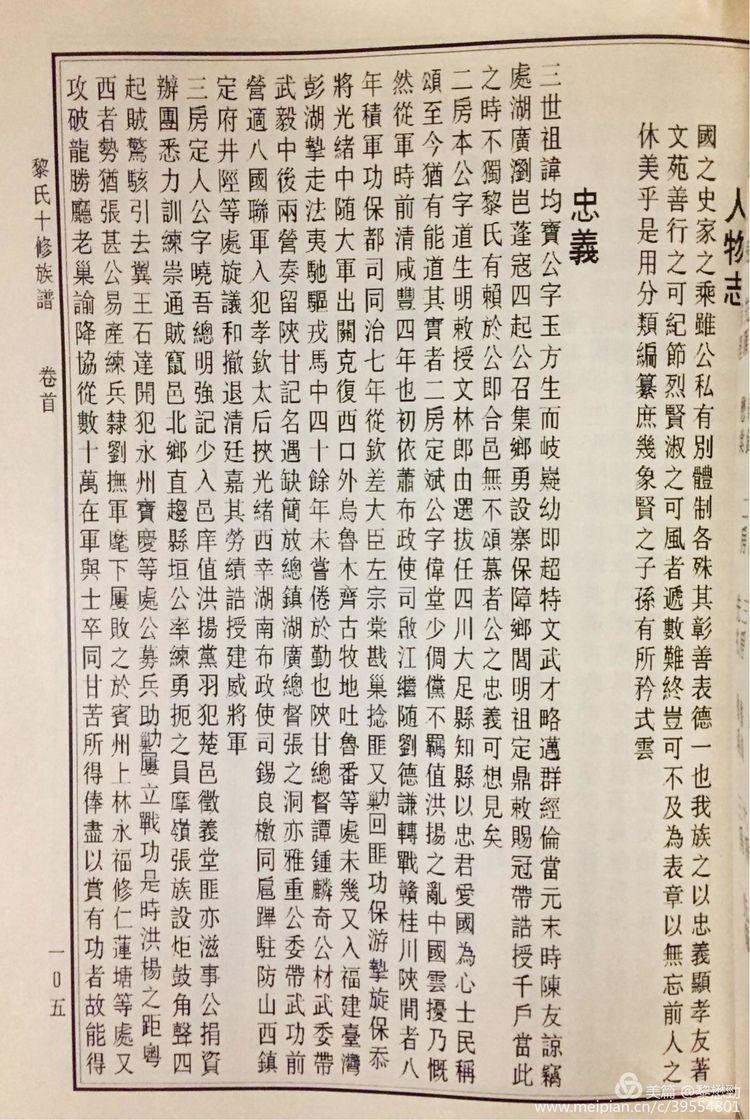 人物志
國之史家之乘雖公私有別體制各殊其彰善表德一也我族之以忠義顯孝友著
文苑善行之可紀節烈賢淑之可風者遞數難終豈可不及為表章以無忘前人之
休美乎是用分類編纂庶幾象賢之子孫有所矜式雲
忠義
三世祖諱均寶公字玉方生而岐嶷幼即超特文武才略邁群經倫當元末時陳友諒竊
處湖廣瀏邑蓬寇四起公召集鄉勇設寨保障鄉閭明祖定鼎敕賜冠帶誥授千戶當此
之時不獨黎氏有賴於公即合邑無不頌慕者公之忠義可想見矣
二房本公字道生明敕授文林郎由選拔任四川大足縣知縣以忠君愛國為心士民稱
頌至今猶有能道其實者二房定斌公字偉堂少倜儻不羈值洪揚之亂中國雲擾乃慨
然從軍時前清咸豐四年也初依蕭布政使司啟江繼隨劉德謙轉戰贛桂川陝間者八
年積軍功保都司同治七年從欽差大臣左宗棠戡巢捻匪又勦回匪功保游擊旋保忝
將光緒中随大軍出關克復西口外烏魯木齊古牧地吐魯番等處未幾又入福建臺灣
彭湖擊走法夷馳驅戎馬中四十餘年未嘗倦於勤也陝甘總督譚鍾麟奇公材武委帶
武毅中後兩營奏留陝甘記名遇缺簡放總鎮湖廣總督張之洞亦雅重公委帶武功前
營適八國聯軍入犯孝欽太后挾光緒西幸湖南布政使司錫良檄同扈蹕駐防山西鎮
定府井陘等處旋議和撤退清廷嘉其勞績誥授建威將軍
三房定人公字曉吾總明強記少入邑庠值洪揚黨羽犯楚邑徵義堂匪亦滋事公捐資
辦團悉力訓練崇通賊竄邑北鄉直趨縣垣公率練勇扼之員摩嶺張族設炬鼓角聲四
起賊驚駭引去翼王石達開犯永州寶慶等處公募兵助勦屢立戰功是時洪楊之距粵
西者勢猶張甚公易產練兵隸劉撫軍麾下屢敗之於賓州上林永福修仁蓮塘等處又
攻破龍勝廳老巢諭降協從數十萬在軍與士卒同甘苦所得俸盡以賞有功者故能得
黎氏十修族譜
卷首
一0五
美篇 @黎楙勁
www.meipian.cn/c/39554801